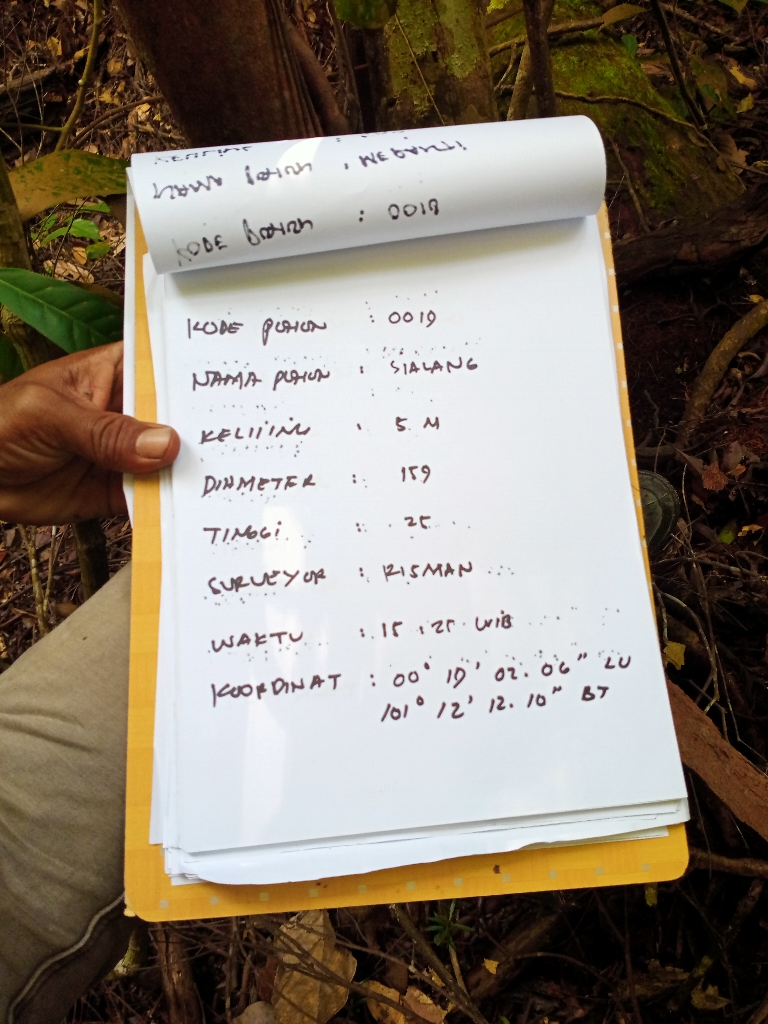 NAMA POHON : MERANTI
KODE POHON : 0018
KODE POHON : 0019
NAMA POHON : SIALANG
KELILING : 5 M
DIAMETER : 159
TINGGI : 25
SURVEYOR : RISMAN
WAKTU : 15 : 25 WIB
KOORDINAT : 00° 19' 02. 06" LU
101° 12' 12. 10" BT